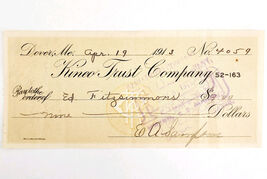 Dover, Me. Apr. 19 1913 No. 4059
Kineo Trust Company 52-163
Pay to the order of Ed Fitzsimmons $9.00
nine Dollars
E A